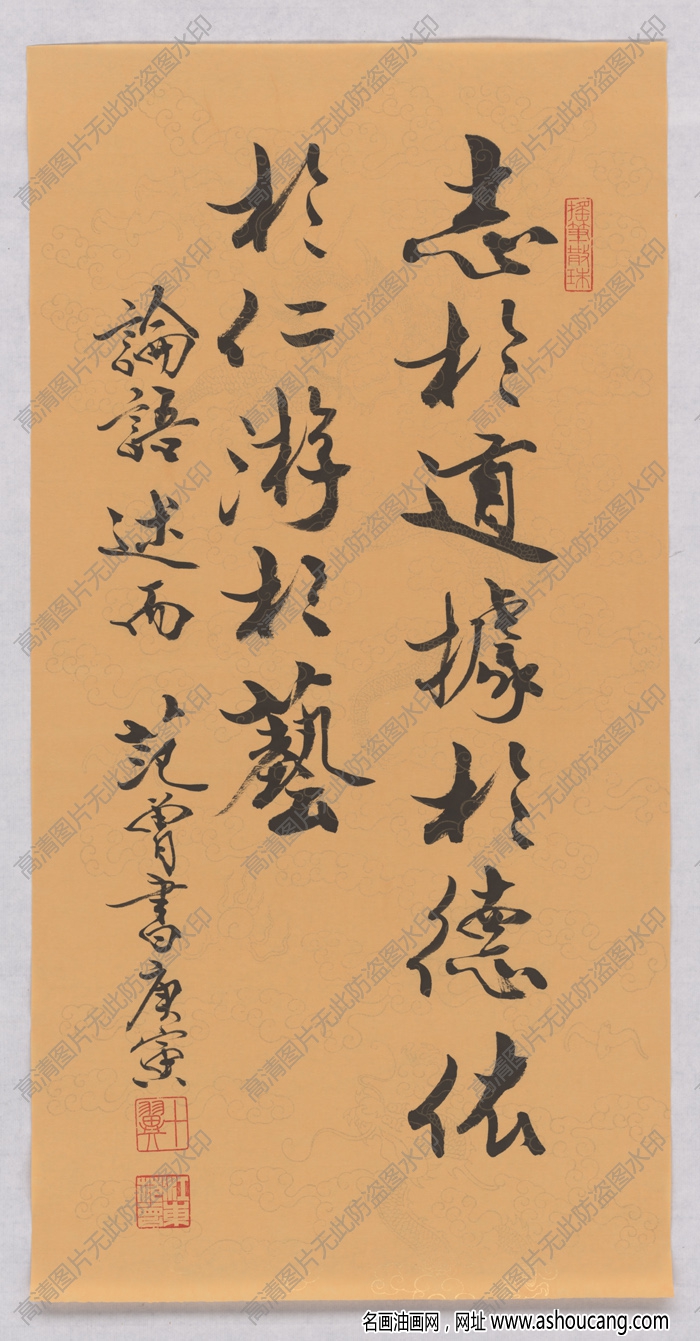 志於道據於德依
於仁游於藝
論語 述而 范曾書庚寅
搖筆散珠
十翼
江東范曾
高清图片无此防盗图水印
名画油画网，网址 www.ashoucang.com